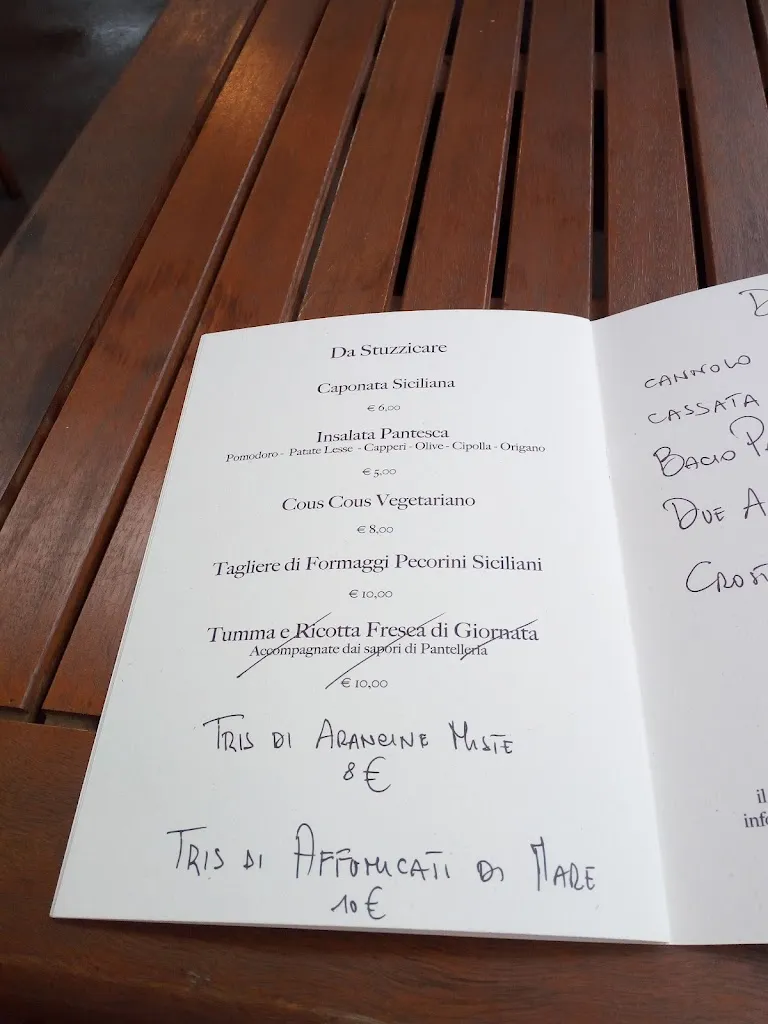 Da Stuzzicare
Caponata Siciliana
€ 6,00
Insalata Pantesca
Pomodoro - Patate Lesse - Capperi - Olive - Cipolla - Origano
€ 5,00
Cous Cous Vegetariano
€ 8,00
Tagliere di Formaggi Pecorini Siciliani
€ 10,00
Tumma e Ricotta Fresca di Giornata
Accompagnate dai sapori di Pantelleria
€ 10,00
TRIS DI ARANCINE MISTE
8 €
TRIS DI AFFUMICATI DI MARE
10 €
CANNOLO
CASSATA
BACIO
DUE A
il
info